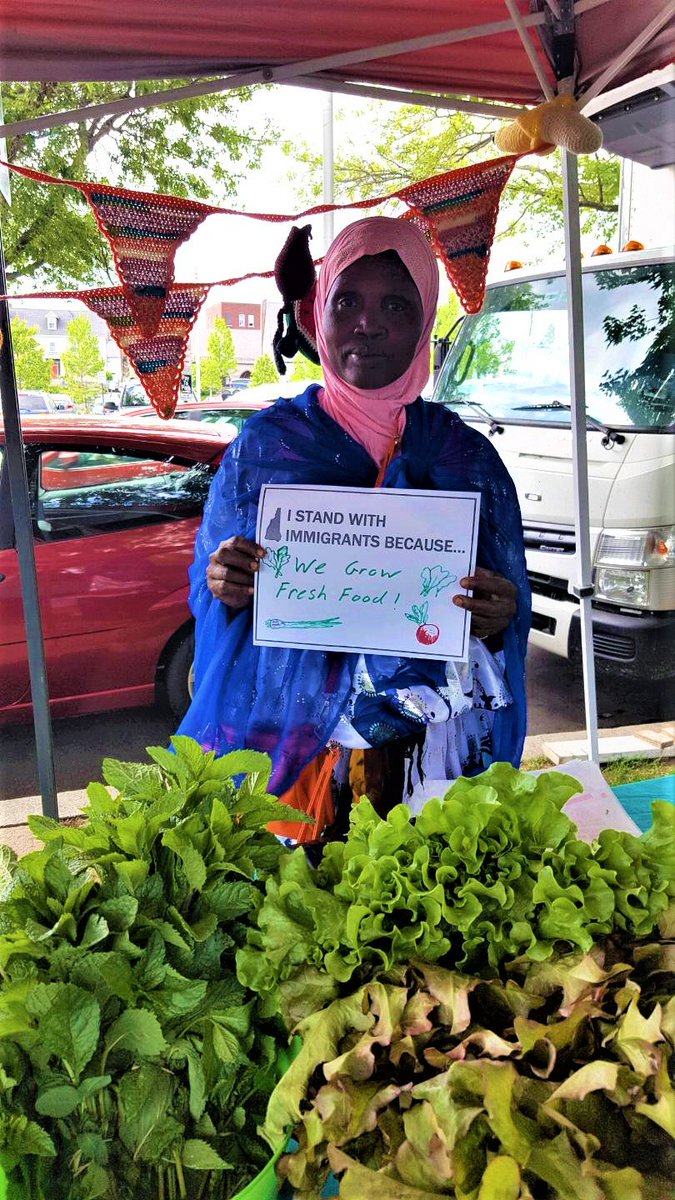 I STAND WITH
IMMIGRANTS BECAUSE...
We Grow
Fresh Food!